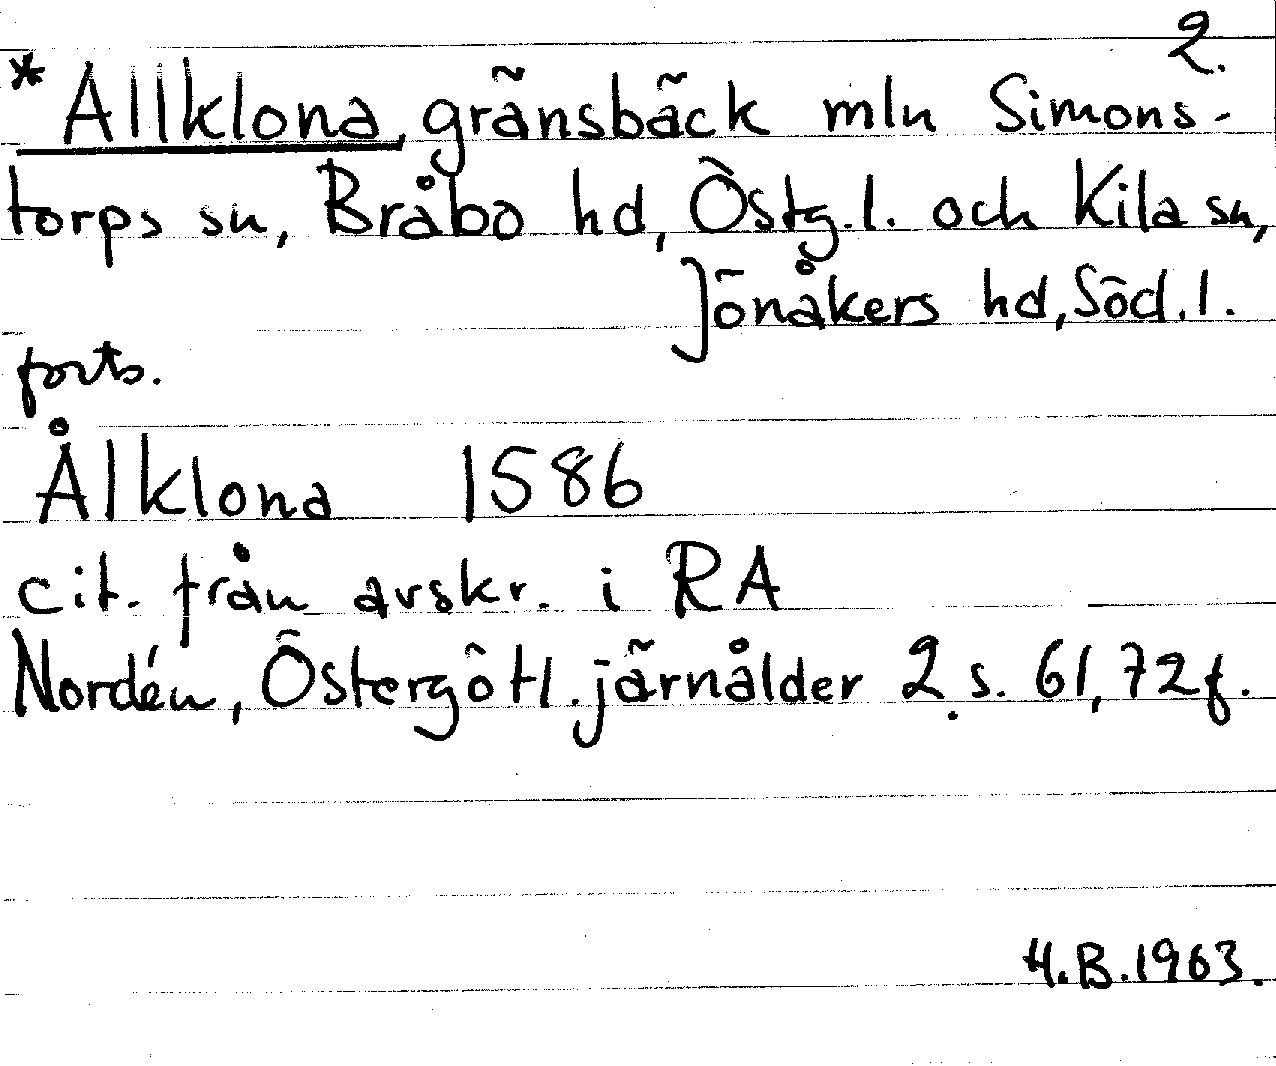 2.
*Allklona, gränsbäck mln Simons-
torps sn, Bråbo hd, Östg.l. och Kila sn,
Jönåkers hd, Söd.l.
forts.
Ålklona 1586
cit. från avskr. i RA
Nordén, Östergötl. järnålder 2 s. 61, 72 f.
H.B. 1963.